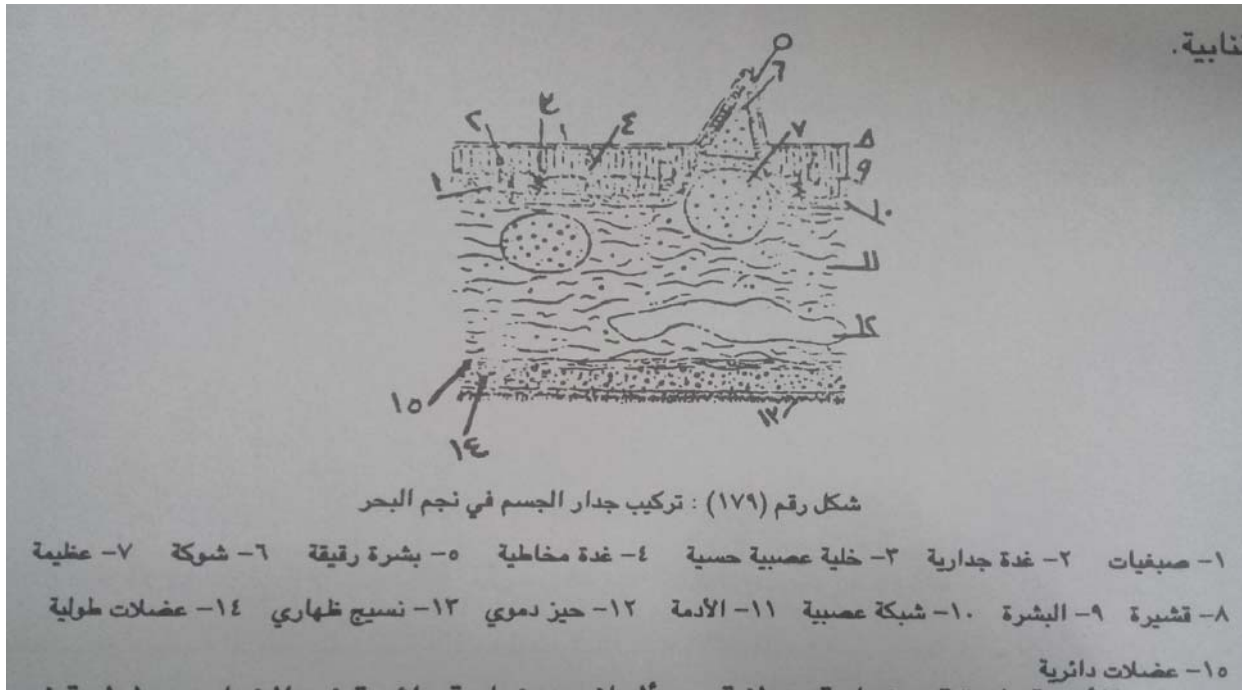 نابية.
٥
٦
٣
٢
٤
٧
٨
٩
١
١٠
١١
١٢
١٥
١٣
١٤
شكل رقم (١٧٩) : تركيب جدار الجسم في نجم البحر
١- صبغيات ٢- غدة جدارية ٣- خلية عصبية حسية ٤- غدة مخاطية ٥- بشرة رقيقة ٦- شوكة ٧- عظيمة
٨- قشيرة ٩- البشرة ١٠- شبكة عصبية ١١- الأدمة ١٢- حيز دموي ١٣- نسيج ظهاري ١٤- عضلات طولية
١٥- عضلات دائرية